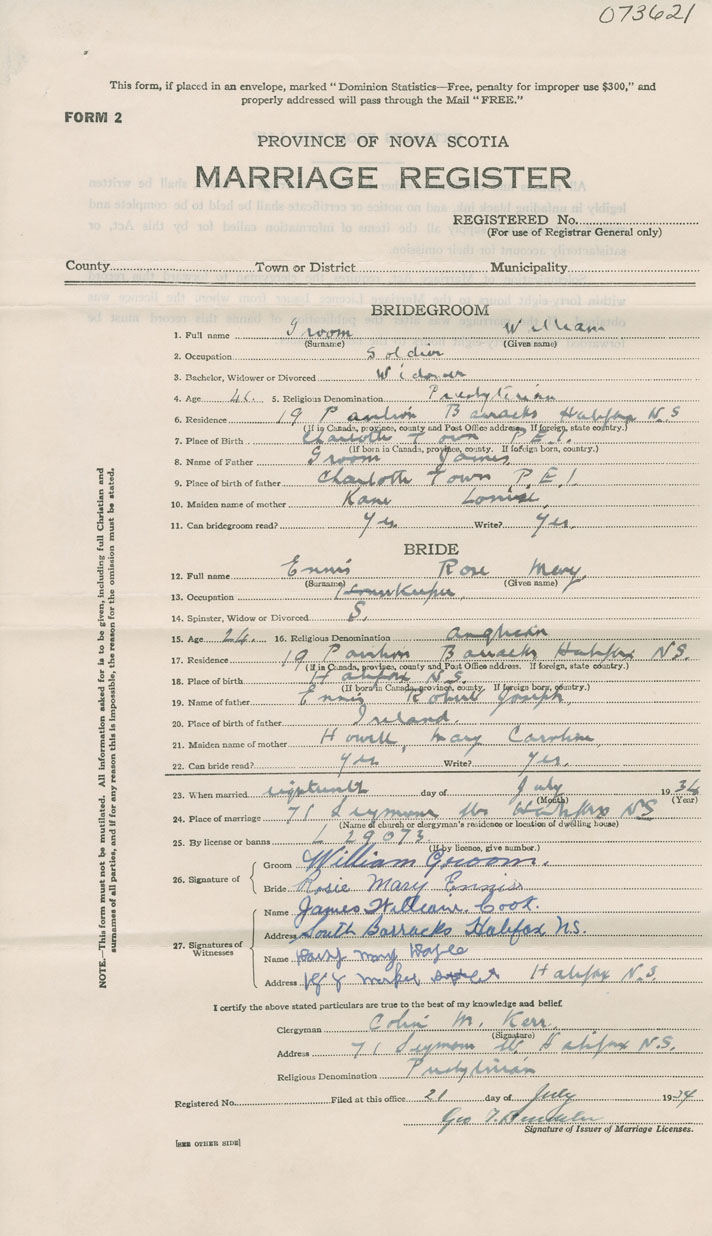 073621
This form, if placed in an envelope, marked "Dominion Statistics—Free, penalty for improper use $300," and
properly addressed will pass through the Mail "FREE."
FORM 2
PROVINCE OF NOVA SCOTIA
MARRIAGE REGISTER
REGISTERED No.
(For use of Registrar General only)
County Town or District Municipality
BRIDEGROOM
1. Full name Groom William
(Surname) (Given name)
2. Occupation Soldier
3. Bachelor, Widower or Divorced Widower
4. Age 46. 5. Religious Denomination Presbyterian
6. Residence 19 Pavilion Barracks Halifax N.S
(If in Canada, province, county and Post Office address. If foreign, state country.)
7. Place of Birth Charlotte Town P.E.I.
(If born in Canada, province, county. If foreign born, country.)
8. Name of Father Groom James
9. Place of birth of father Charlotte Town P.E.I.
10. Maiden name of mother Kane Louise
11. Can bridegroom read? Yes Write? Yes.
BRIDE
12. Full name Ennis Rose Mary
(Surname) (Given name)
13. Occupation Housekeeper
14. Spinster, Widow or Divorced S.
15. Age 24. 16. Religious Denomination Anglican
17. Residence 19 Pavilion Barracks Halifax NS.
(If in Canada, province, county and Post Office address. If foreign, state country.)
18. Place of birth Halifax N.S.
(If born in Canada, province, county. If foreign born, country.)
19. Name of father Ennis Robert Joseph
20. Place of birth of father Ireland.
21. Maiden name of mother Howell, Mary Caroline
22. Can bride read? Yes Write? Yes.
23. When married eighteenth day of July 1934
(Month) (Year)
24. Place of marriage 71 Seymour St. Halifax NS
(Name of church or clergyman's residence or location of dwelling house)
25. By license or banns L 29073
(If by licence, give number.)
26. Signature of
Groom William Groom.
Bride Rosie Mary Ennis
27. Signatures of Witnesses
Name James William Cook.
Address South Barracks Halifax N.S.
Name Mary
Address Halifax N.S.
NOTE.—This form must not be mutilated. All information asked for is to be given, including full Christian and
surnames of all parties, and if for any reason this is impossible, the reason for the omission must be stated.
I certify the above stated particulars are true to the best of my knowledge and belief.
Clergyman Colin M. Kerr
(Signature)
Address 71 Seymour St. Halifax N.S.
Religious Denomination Presbyterian
Registered No. Filed at this office 21 day of July 1934
Geo
Signature of Issuer of Marriage Licenses.
[SEE OTHER SIDE]